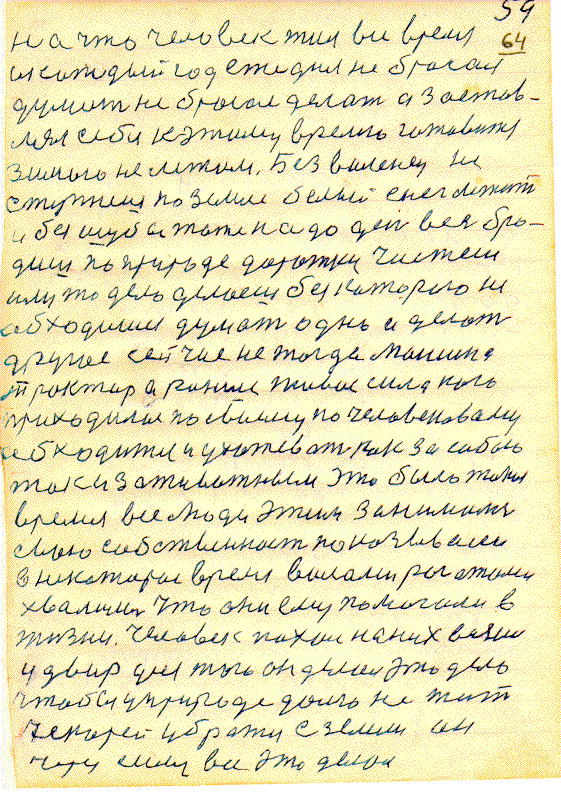 59
64
на что человек жил все время
и каждый год ежедня не бросал
думат не бросал делат а застав-
лял себя к этому время готовится
зимою не летом. Без валенец не
ступниш по земле белый снег лежит
и без шуби тоже надо ден вся бро-
диш по природе дорожки чистеш
или то дело делаеш без которого не
обходишся думат одно а делат
другое сейчас не тогда машина
трактар а раниш живое сила кого
приходилос по своему по человековому
обходится и ухажеват как за собою
так и за животным это было такое
время все люди этим занималис
свою собственност показывали
в некоторое время валами рогатами
хвалилис что они ему помогали в
жизни. Человек пахал на них возил
и двир для того он делал это дело
чтобы у природе долго не жит
чекорей убратся с земли он
через силу все это делал